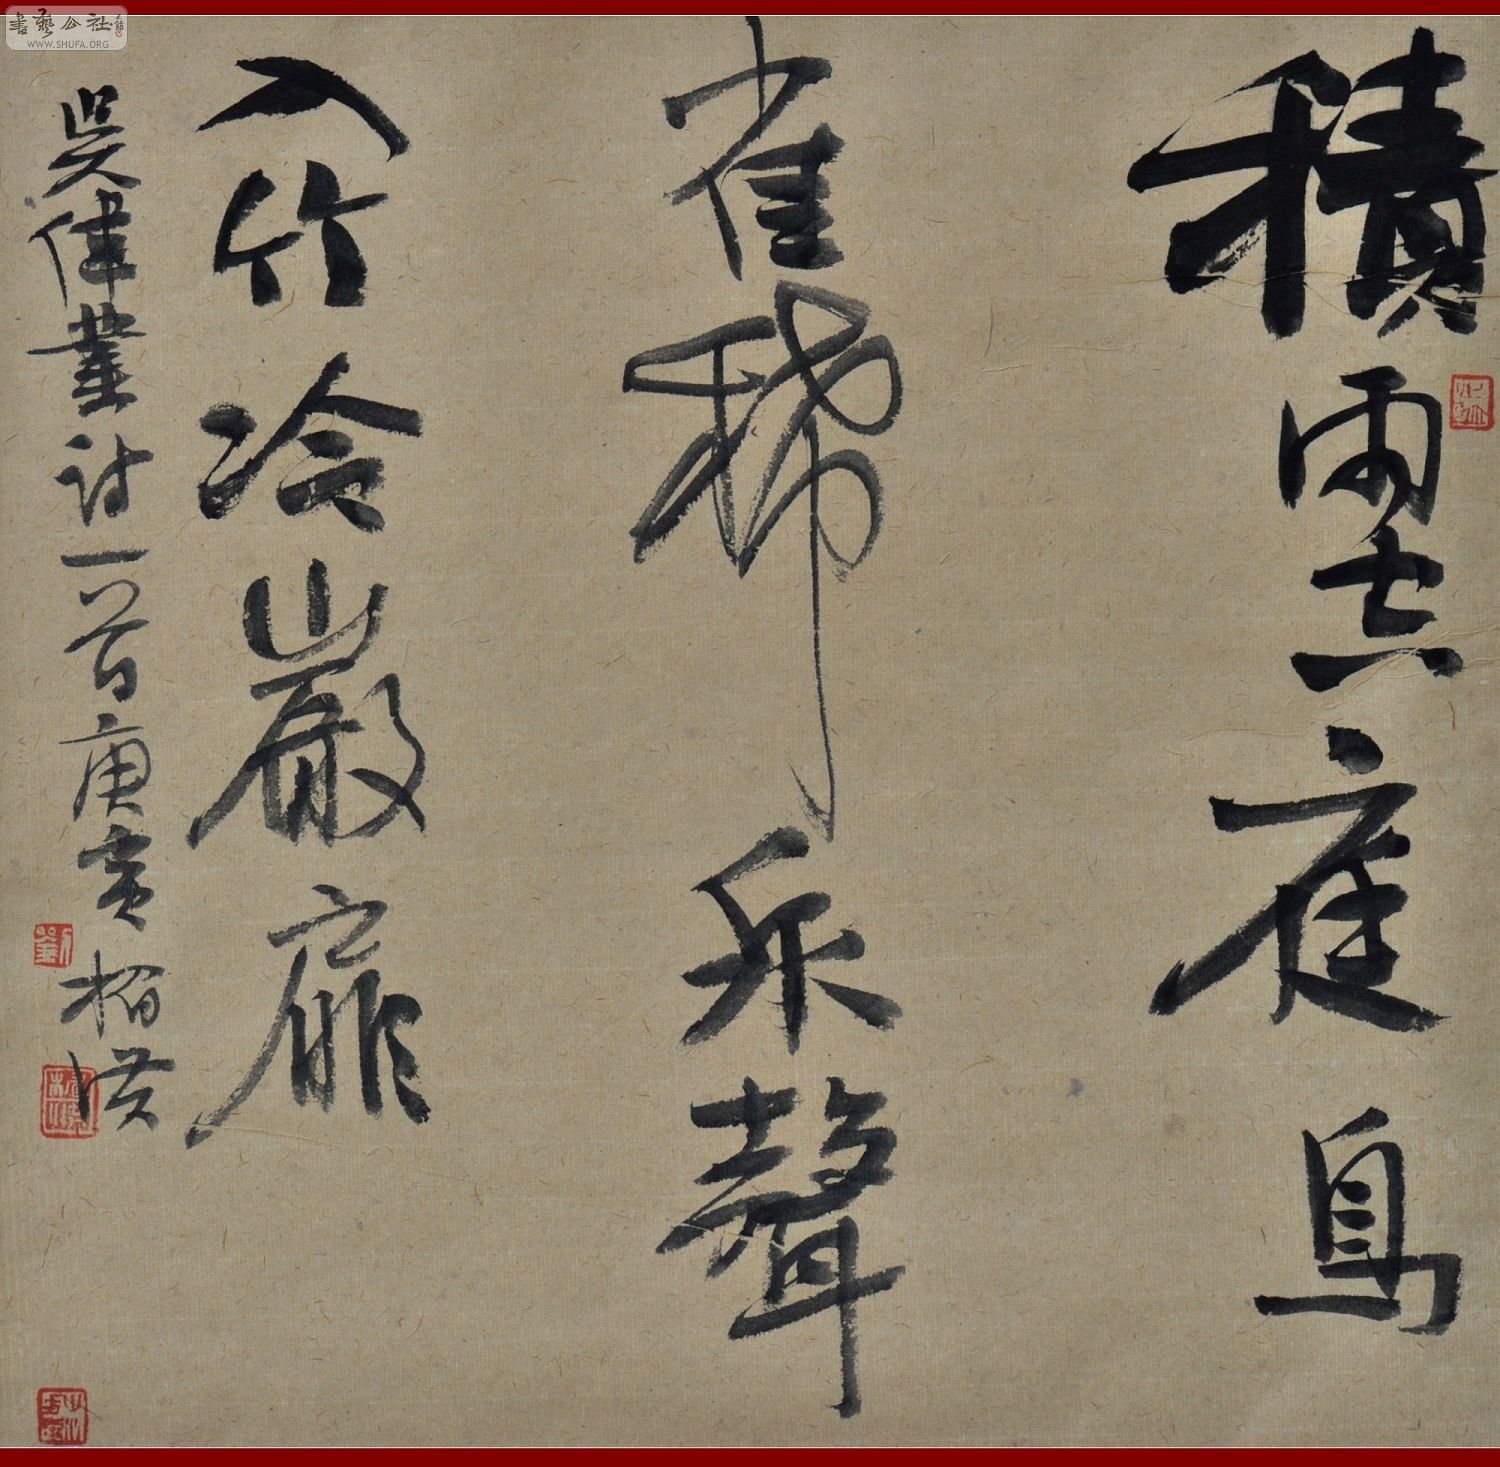 書藝公社
WWW.SHUFA.ORG
積雨空庭鳥
雀稀乐聲
入竹冷巖扉
吳偉業詩一首庚寅
劉